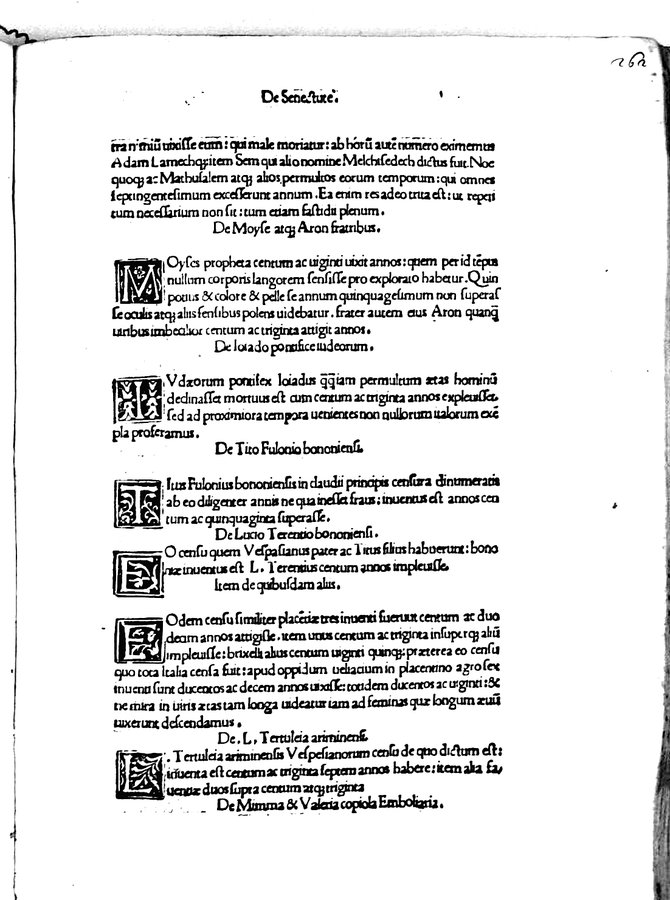 262
De Senectute.
tra nimiũ uixisse eum: qui male moriatur: ab horũ autẽ numero eximemus
Adam Lamechq; item Sem qui alio nomine Melchisedech dictus fuit. Noe
quoq; ac Mathusalem atq; alios permultos eorum temporum: qui omnes
septingentesimum excesserunt annum. Ea enim res adeo trita est: ut reperi
tum necessarium non sit: tum etiam fastidii plenum.
De Moyse atq; Aron fratribus.
MOyses propheta centum ac uiginti uixit annos: quem per id tẽpus
nullum corporis langorem sensisse pro explorato habetur. Quin
potius & colore & pelle se annum quinquagesimum non superas
se oculis atq; aliis sensibus polens uidebatur. frater autem eius Aron quanq̃
uiribus imbecilior centum ac triginta attigit annos.
De Ioiado pontifice iudeorum.
IVdæorum pontifex Ioiadus q̃q̃iam permultum ætas hominũ
declinasset mortuus est cum centum ac triginta annos expleuisset
sed ad proximiora tempora uenientes non nullorum italorum exẽ
pla proferamus.
De Tito Fulonio bononiensi.
Titus Fulonius bononiensis in claudii principis censura dinumeratis
ab eo diligenter annis ne qua inesset fraus: inuentus est annos cen
tum ac quinquaginta superasse.
De Lucio Terentio bononiensi.
EO censu quem Vespasianus pater ac Titus filius habuerunt: bono
niæ inuentus est L. Terentius centum annos impleuisse.
Item de quibusdam aliis.
EOdem censu similiter placẽtiæ tres inuenti fuerunt centum ac duo
decim annos attigisse. item unus centum ac triginta insuperq; aliũ
impleuisse: brixelli alius centum uiginti quinq; præterea eo censu
quo tota italia censa fuit: apud oppidum ueliacium in placentino agro sex
inuenti sunt ducentos ac decem annos uixisse: totidem ducentos ac uiginti: &
ne mira in uiris ætas tam longa uideatur iam ad feminas quæ longum æuũ
uixerunt descendamus.
De. L. Tertuleia ariminensi.
L. Tertuleia ariminensis Vespesianorum censu de quo dictum est:
inuenta est centum ac triginta septem annos habere: item alia fa,
uentiæ duos supra centum atq; triginta
De Mimma & Valeria copiola Emboliaria.